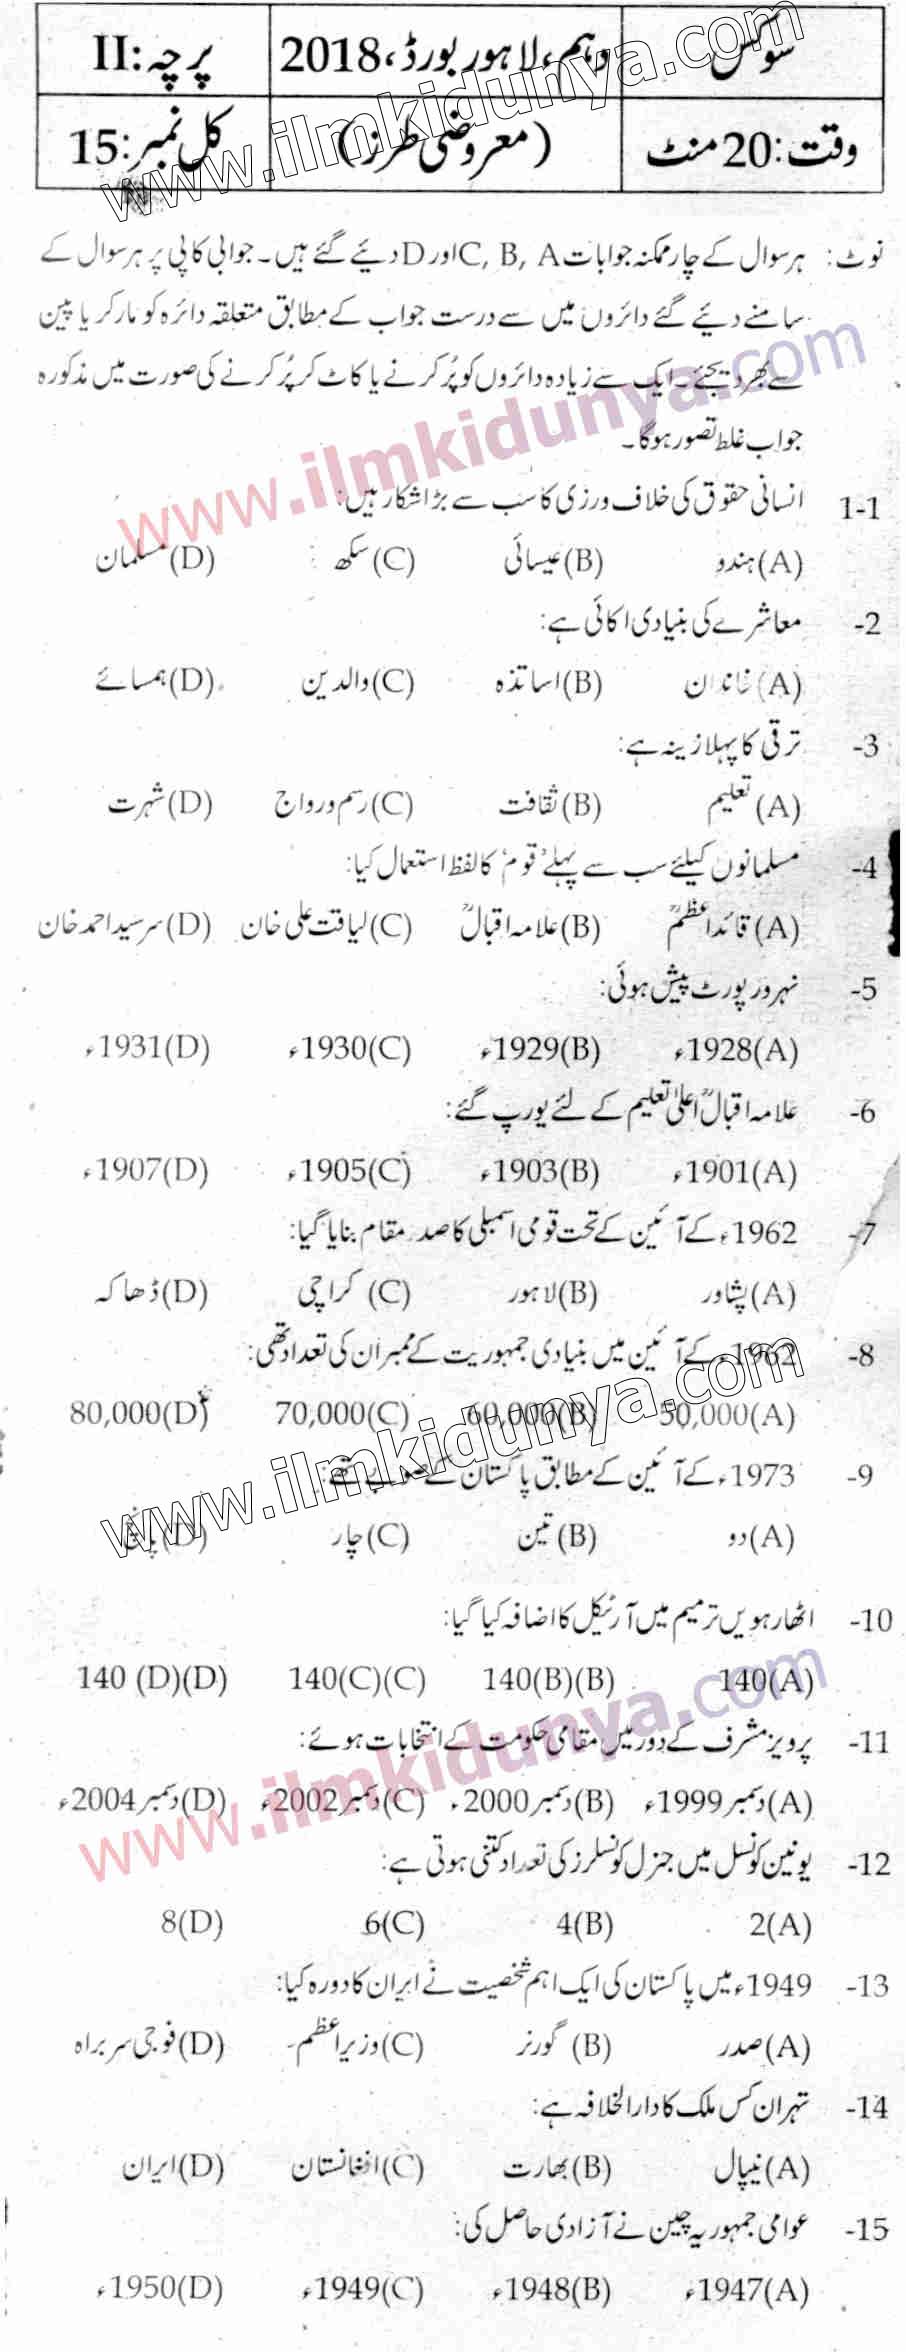 سوکس دہم، لاہور بورڈ، 2018 پرچہ: II
وقت: 20 منٹ (معروضی طرز) کل نمبر: 15
www.ilmkidunya.com
نوٹ: ہر سوال کے چار ممکنہ جوابات C, B, A اور D دیئے گئے ہیں۔ جوابی کاپی پر ہر سوال کے
سامنے دیئے گئے دائروں میں سے درست جواب کے مطابق متعلقہ دائرہ کو مارکر یا پین
سے بھر دیجئے۔ ایک سے زیادہ دائروں کو پُر کرنے یا کاٹ کر پُر کرنے کی صورت میں مذکورہ
جواب غلط تصور ہوگا۔
www.ilmkidunya.com
1-1 انسانی حقوق کی خلاف ورزی کا سب سے بڑا شکار ہیں:
(A) ہندو (B) عیسائی (C) سکھ (D) مسلمان
2- معاشرے کی بنیادی اکائی ہے:
(A) خاندان (B) اساتذہ (C) والدین (D) ہمسائے
3- ترقی کا پہلا زینہ ہے:
(A) تعلیم (B) ثقافت (C) رسم و رواج (D) شہرت
4- مسلمانوں کیلئے سب سے پہلے 'قوم' کا لفظ استعمال کیا:
(A) قائداعظمؒ (B) علامہ اقبالؒ (C) لیاقت علی خان (D) سر سید احمد خان
5- نہرو رپورٹ پیش ہوئی:
(A) 1928ء (B) 1929ء (C) 1930ء (D) 1931ء
6- علامہ اقبالؒ اعلیٰ تعلیم کے لئے یورپ گئے:
(A) 1901ء (B) 1903ء (C) 1905ء (D) 1907ء
7- 1962ء کے آئین کے تحت قومی اسمبلی کا صدر مقام بنایا گیا:
(A) پشاور (B) لاہور (C) کراچی (D) ڈھاکہ
8- 1962ء کے آئین میں بنیادی جمہوریت کے ممبران کی تعداد تھی:
(A) 50,000 (B) 60,000 (C) 70,000 (D) 80,000
www.ilmkidunya.com
9- 1973ء کے آئین کے مطابق پاکستان کے صوبے تھے:
(A) دو (B) تین (C) چار (D) پانچ
10- اٹھارہویں ترمیم میں آرٹیکل کا اضافہ کیا گیا:
140(A) 140(B)(B) 140(C)(C) 140 (D)(D)
11- پرویز مشرف کے دور میں مقامی حکومت کے انتخابات ہوئے:
(A) دسمبر 1999ء (B) دسمبر 2000ء (C) دسمبر 2002ء (D) دسمبر 2004ء
www.ilmkidunya.com
12- یونین کونسل میں جنرل کونسلرز کی تعداد کتنی ہوتی ہے:
(A) 2 (B) 4 (C) 6 (D) 8
13- 1949ء میں پاکستان کی ایک اہم شخصیت نے ایران کا دورہ کیا:
(A) صدر (B) گورنر (C) وزیراعظم (D) فوجی سربراہ
14- تہران کس ملک کا دارالخلافہ ہے:
(A) نیپال (B) بھارت (C) افغانستان (D) ایران
15- عوامی جمہوریہ چین نے آزادی حاصل کی:
(A) 1947ء (B) 1948ء (C) 1949ء (D) 1950ء